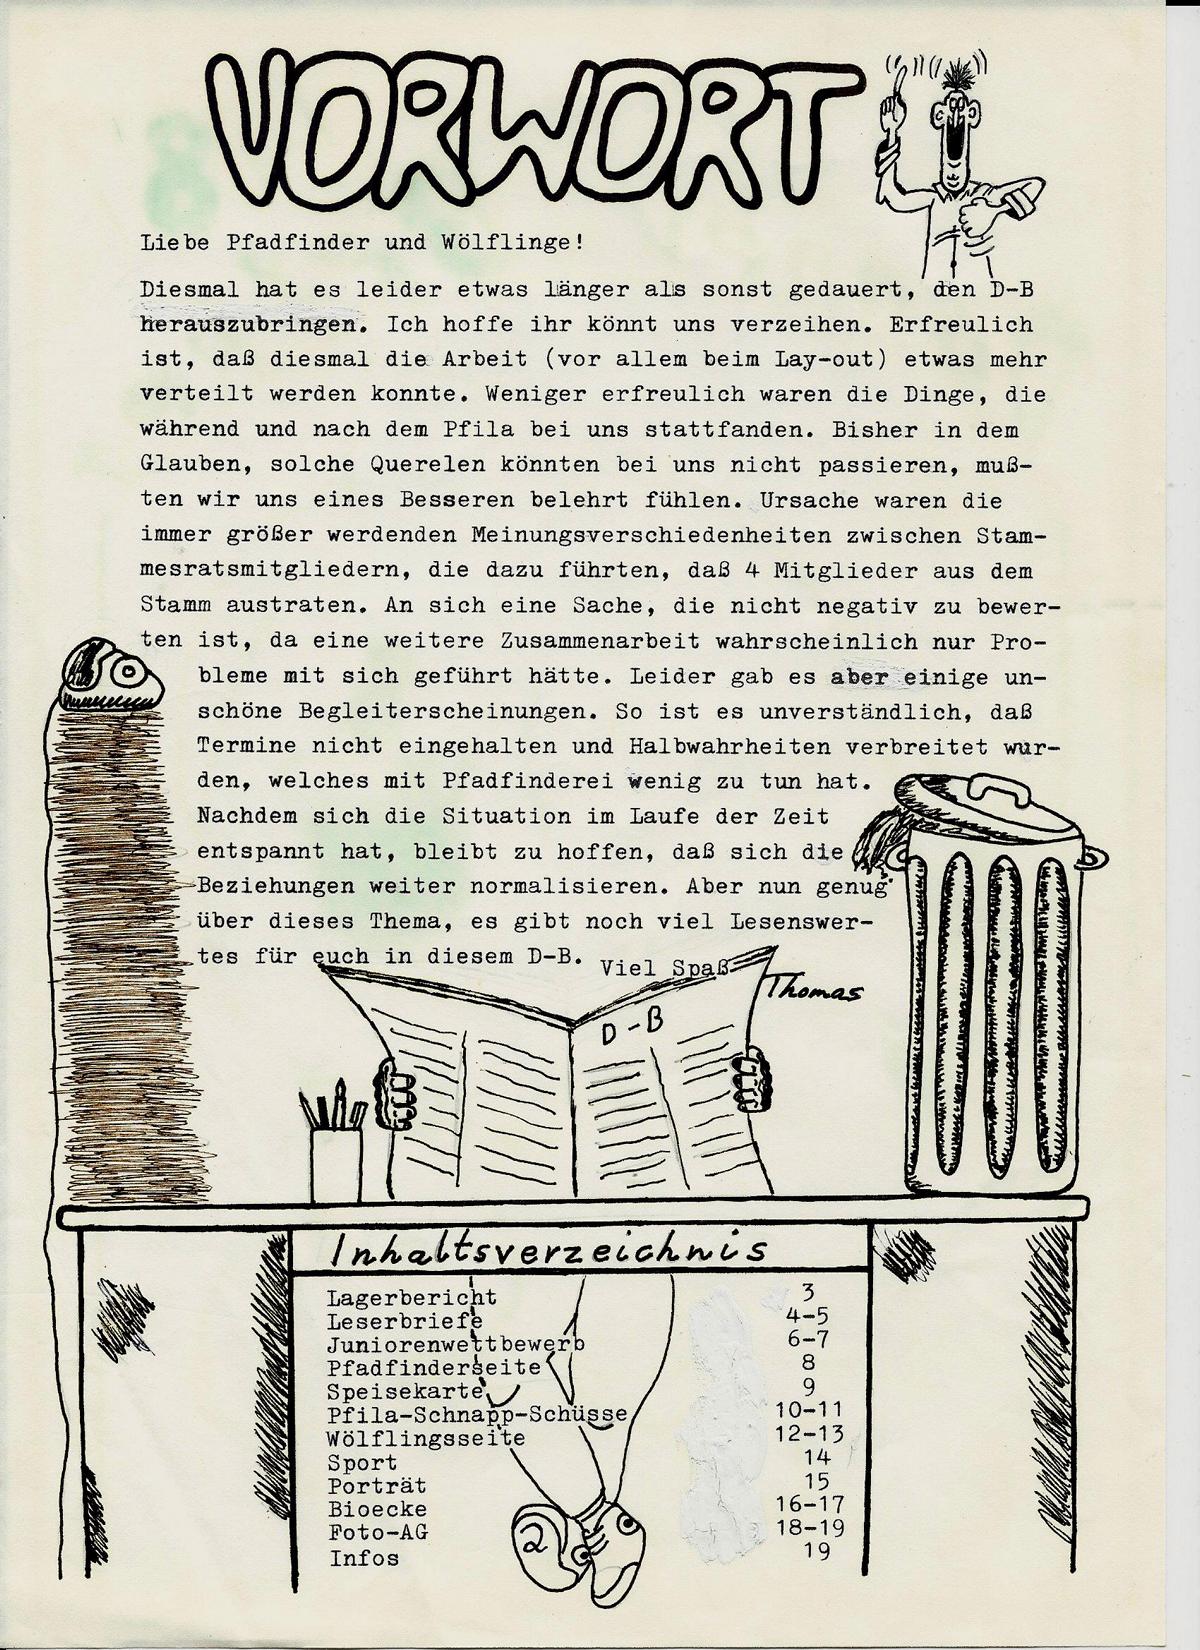 VORWORT
Liebe Pfadfinder und Wölflinge!
Diesmal hat es leider etwas länger als sonst gedauert, den D-B
herauszubringen. Ich hoffe ihr könnt uns verzeihen. Erfreulich
ist, daß diesmal die Arbeit (vor allem beim Lay-out) etwas mehr
verteilt werden konnte. Weniger erfreulich waren die Dinge, die
während und nach dem Pfila bei uns stattfanden. Bisher in dem
Glauben, solche Querelen könnten bei uns nicht passieren, muß-
ten wir uns eines Besseren belehrt fühlen. Ursache waren die
immer größer werdenden Meinungsverschiedenheiten zwischen Stam-
mesratsmitgliedern, die dazu führten, daß 4 Mitglieder aus dem
Stamm austraten. An sich eine Sache, die nicht negativ zu bewer-
ten ist, da eine weitere Zusammenarbeit wahrscheinlich nur Pro-
bleme mit sich geführt hätte. Leider gab es aber einige un-
schöne Begleiterscheinungen. So ist es unverständlich, daß
Termine nicht eingehalten und Halbwahrheiten verbreitet wur-
den, welches mit Pfadfinderei wenig zu tun hat.
Nachdem sich die Situation im Laufe der Zeit
entspannt hat, bleibt zu hoffen, daß sich die
Beziehungen weiter normalisieren. Aber nun genug
über dieses Thema, es gibt noch viel Lesenswer-
tes für euch in diesem D-B. Viel Spaß
Thomas
D-B
Inhaltsverzeichnis
Lagerbericht 3
Leserbriefe 4-5
Juniorenwettbewerb 6-7
Pfadfinderseite 8
Speisekarte 9
Pfila-Schnapp-Schüsse 10-11
Wölflingsseite 12-13
Sport 14
Porträt 15
Bioecke 16-17
Foto-AG 18-19
Infos 19
2